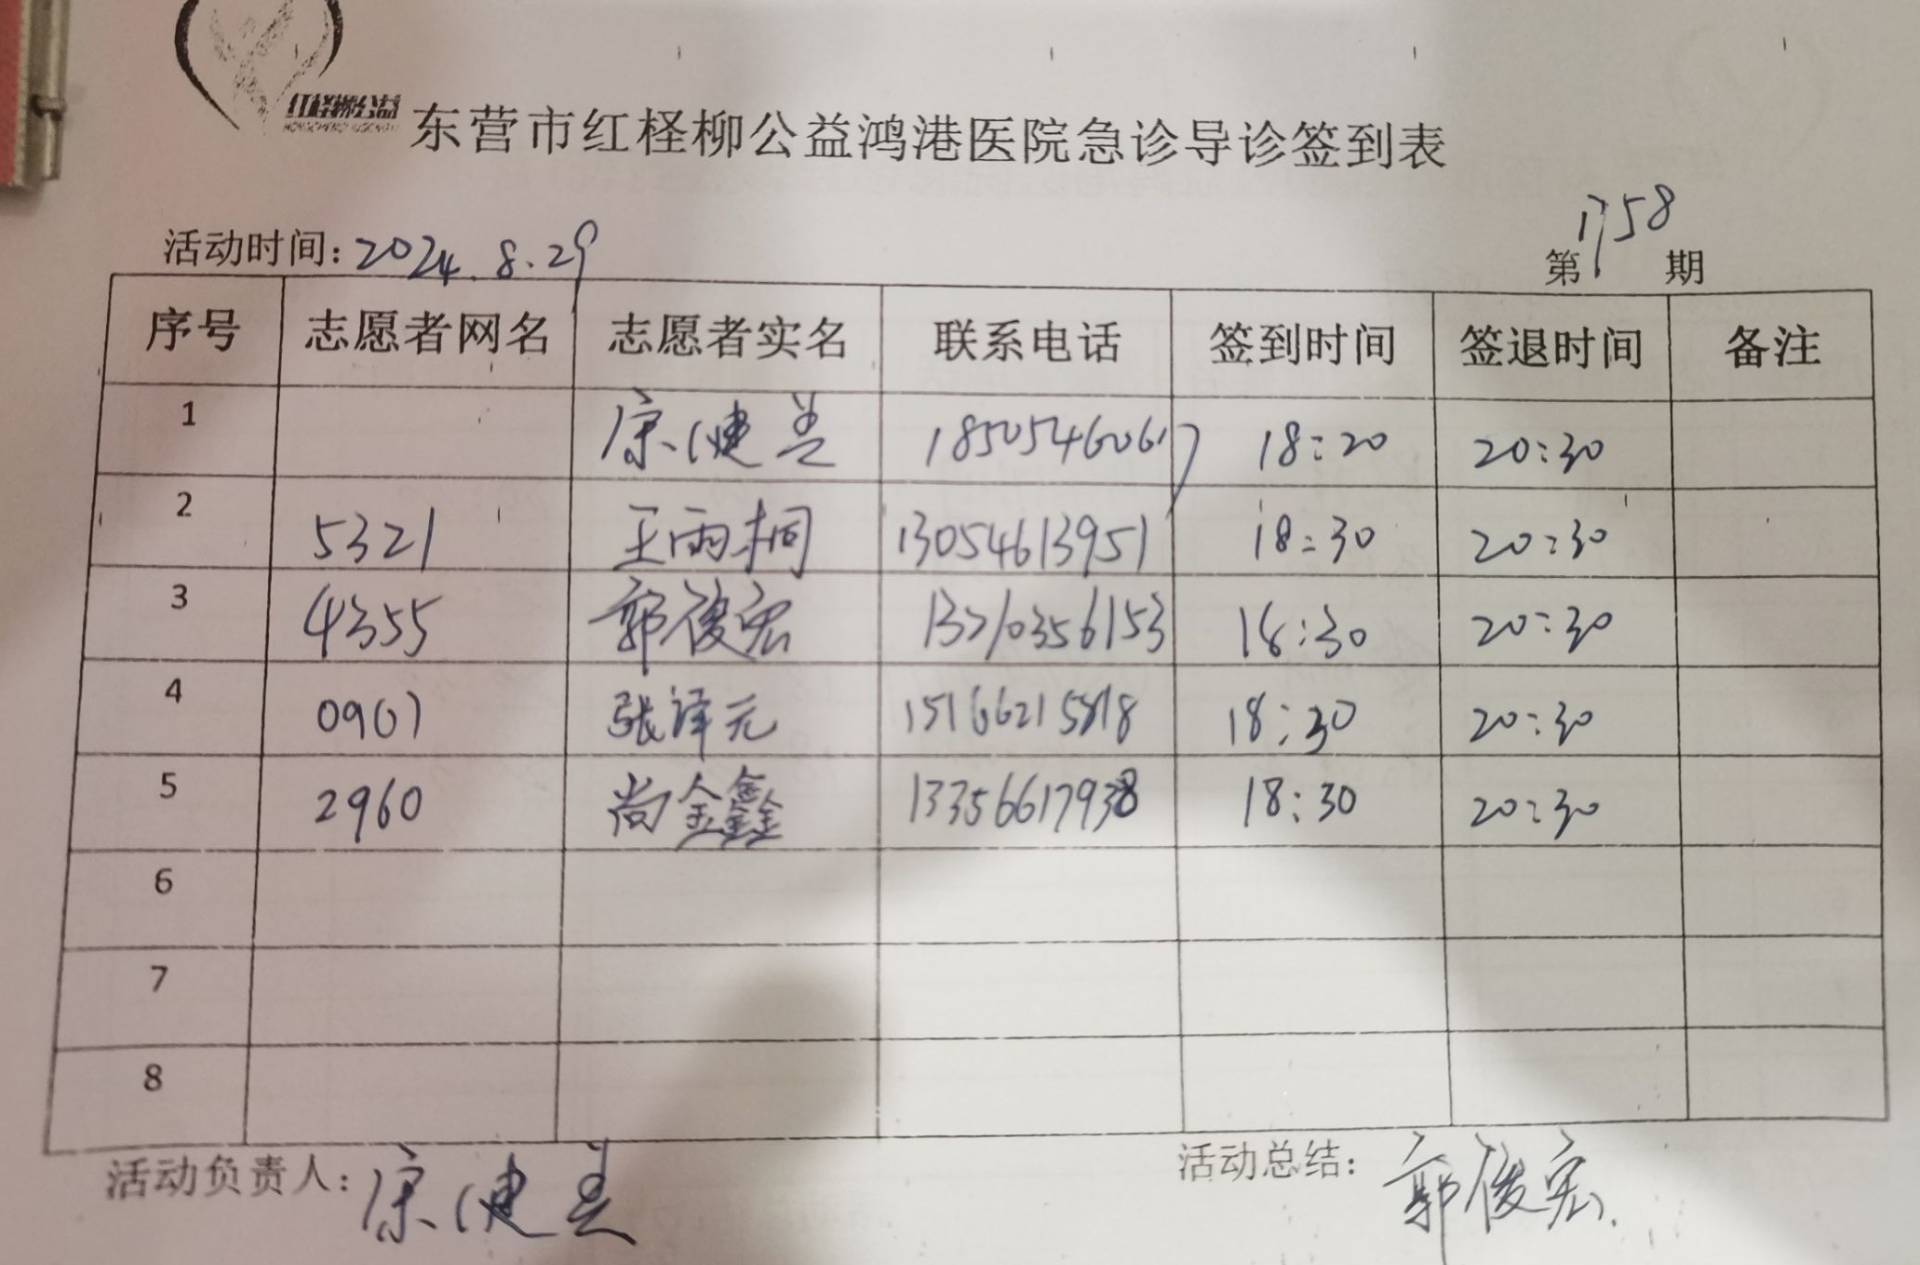 红柽柳公益
东营市红柽柳公益鸿港医院急诊导诊签到表
活动时间：2024.8.29 第1758期
序号 志愿者网名 志愿者实名 联系电话 签到时间 签退时间 备注
1 康健美 18505460617 18:20 20:30
2 5321 王雨桐 13054613951 18:30 20:30
3 4355 郭俊宏 18:30 20:30
4 0907 张译元 18:30 20:30
5 2960 尚金鑫 13356617938 18:30 20:30
6
7
8
活动负责人：康健美 活动总结：郭俊宏